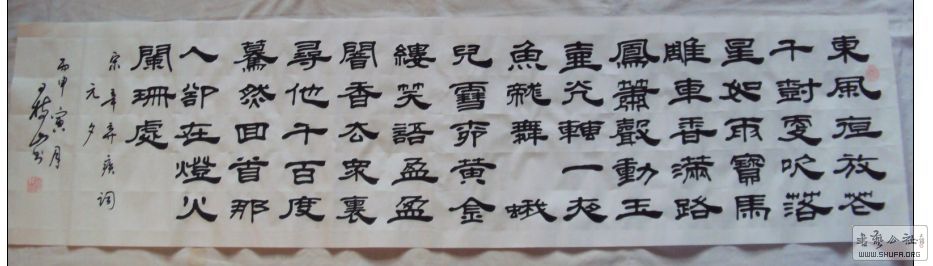 東風夜放花
千對更吹落
星如雨寶馬
雕車香滿路
鳳簫聲動玉
壺光轉一夜
魚龍舞 蛾
兒雪柳黃金
縷笑語盈盈
闇香去衆裏
尋他千百度
驀然回首那
人卻在燈火
闌珊處
宋 辛弃疾詞
元夕
丙申寅月
山书
书艺公社
WWW.SHUFA.ORG